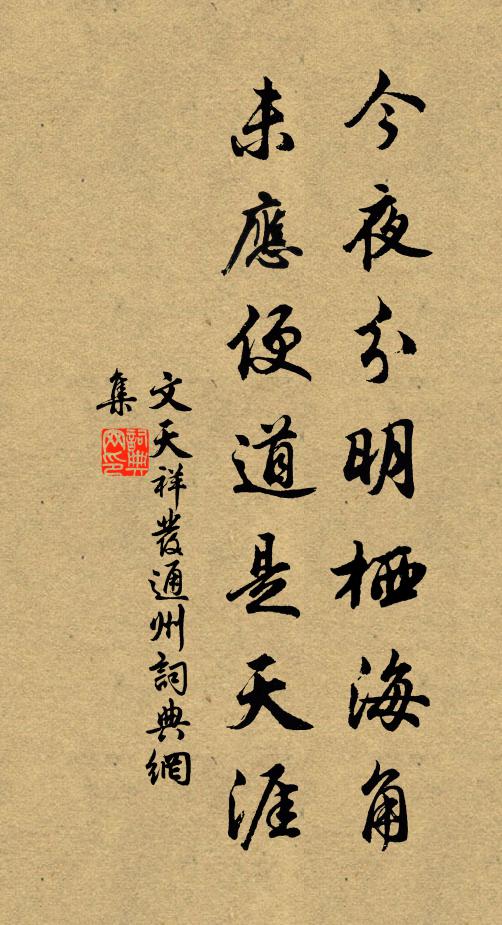 今夜分明栖海角
未應便道是天涯
文天祥發通州詞典網
集
詞典
网印